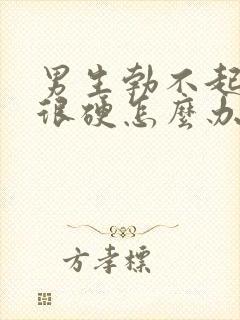 男生勃不起
很硬怎麼办
方孝標